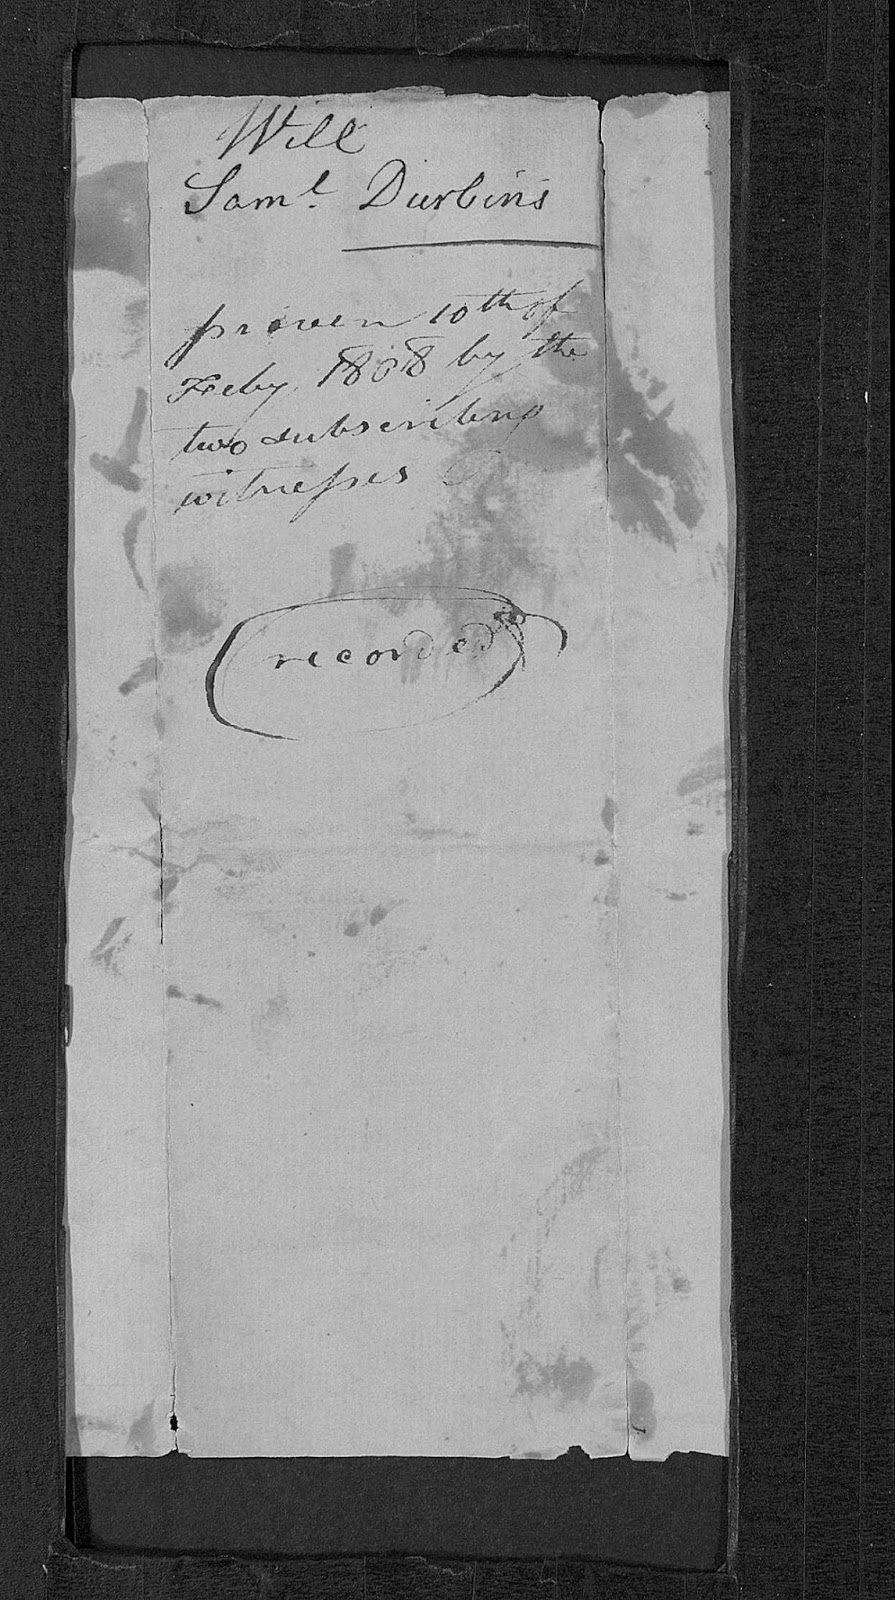 Will
Saml. Durbins
proven 10th of
Feby. 1808 by the
two subscribing
witnesses
recorded